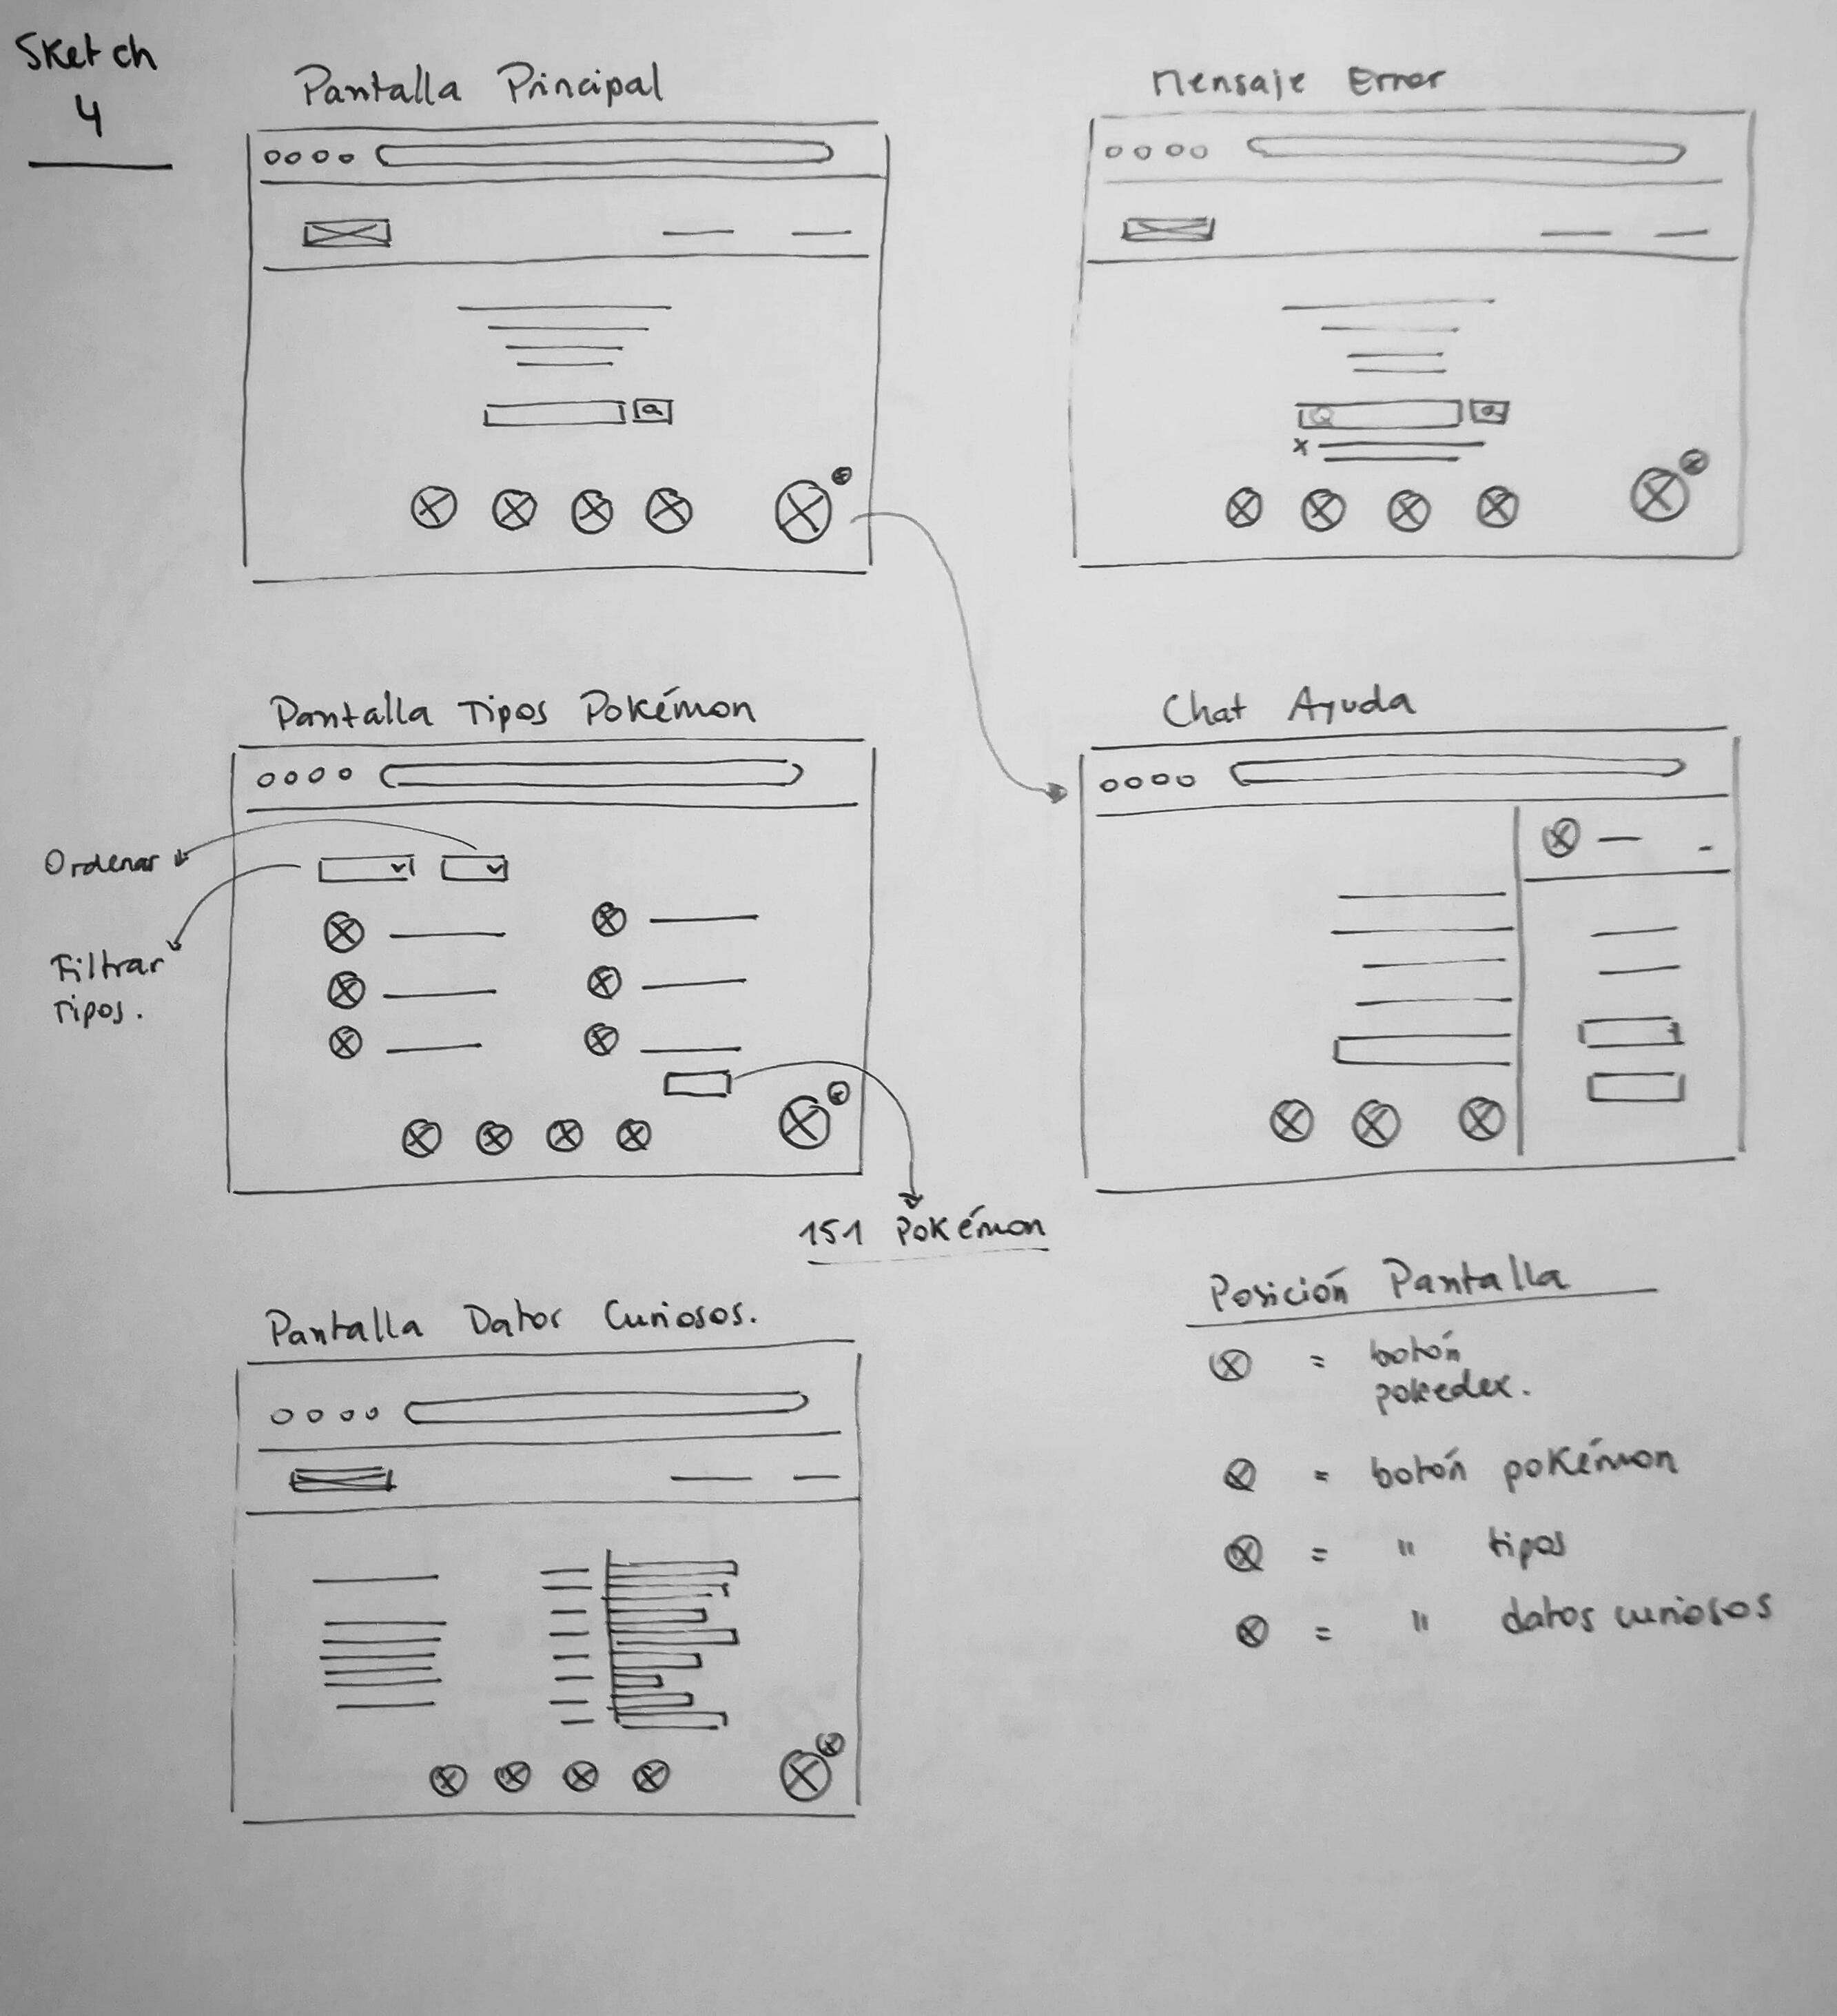 Sketch
4
Pantalla Principal
Mensaje Error
Pantalla Tipos Pokémon
Ordenar
Filtrar
Tipos.
151 Pokémon
Chat Ayuda
Pantalla Datos Curiosos.
Posición Pantalla
= botón
pokedex.
= botón pokémon
= " tipos
= " datos curiosos